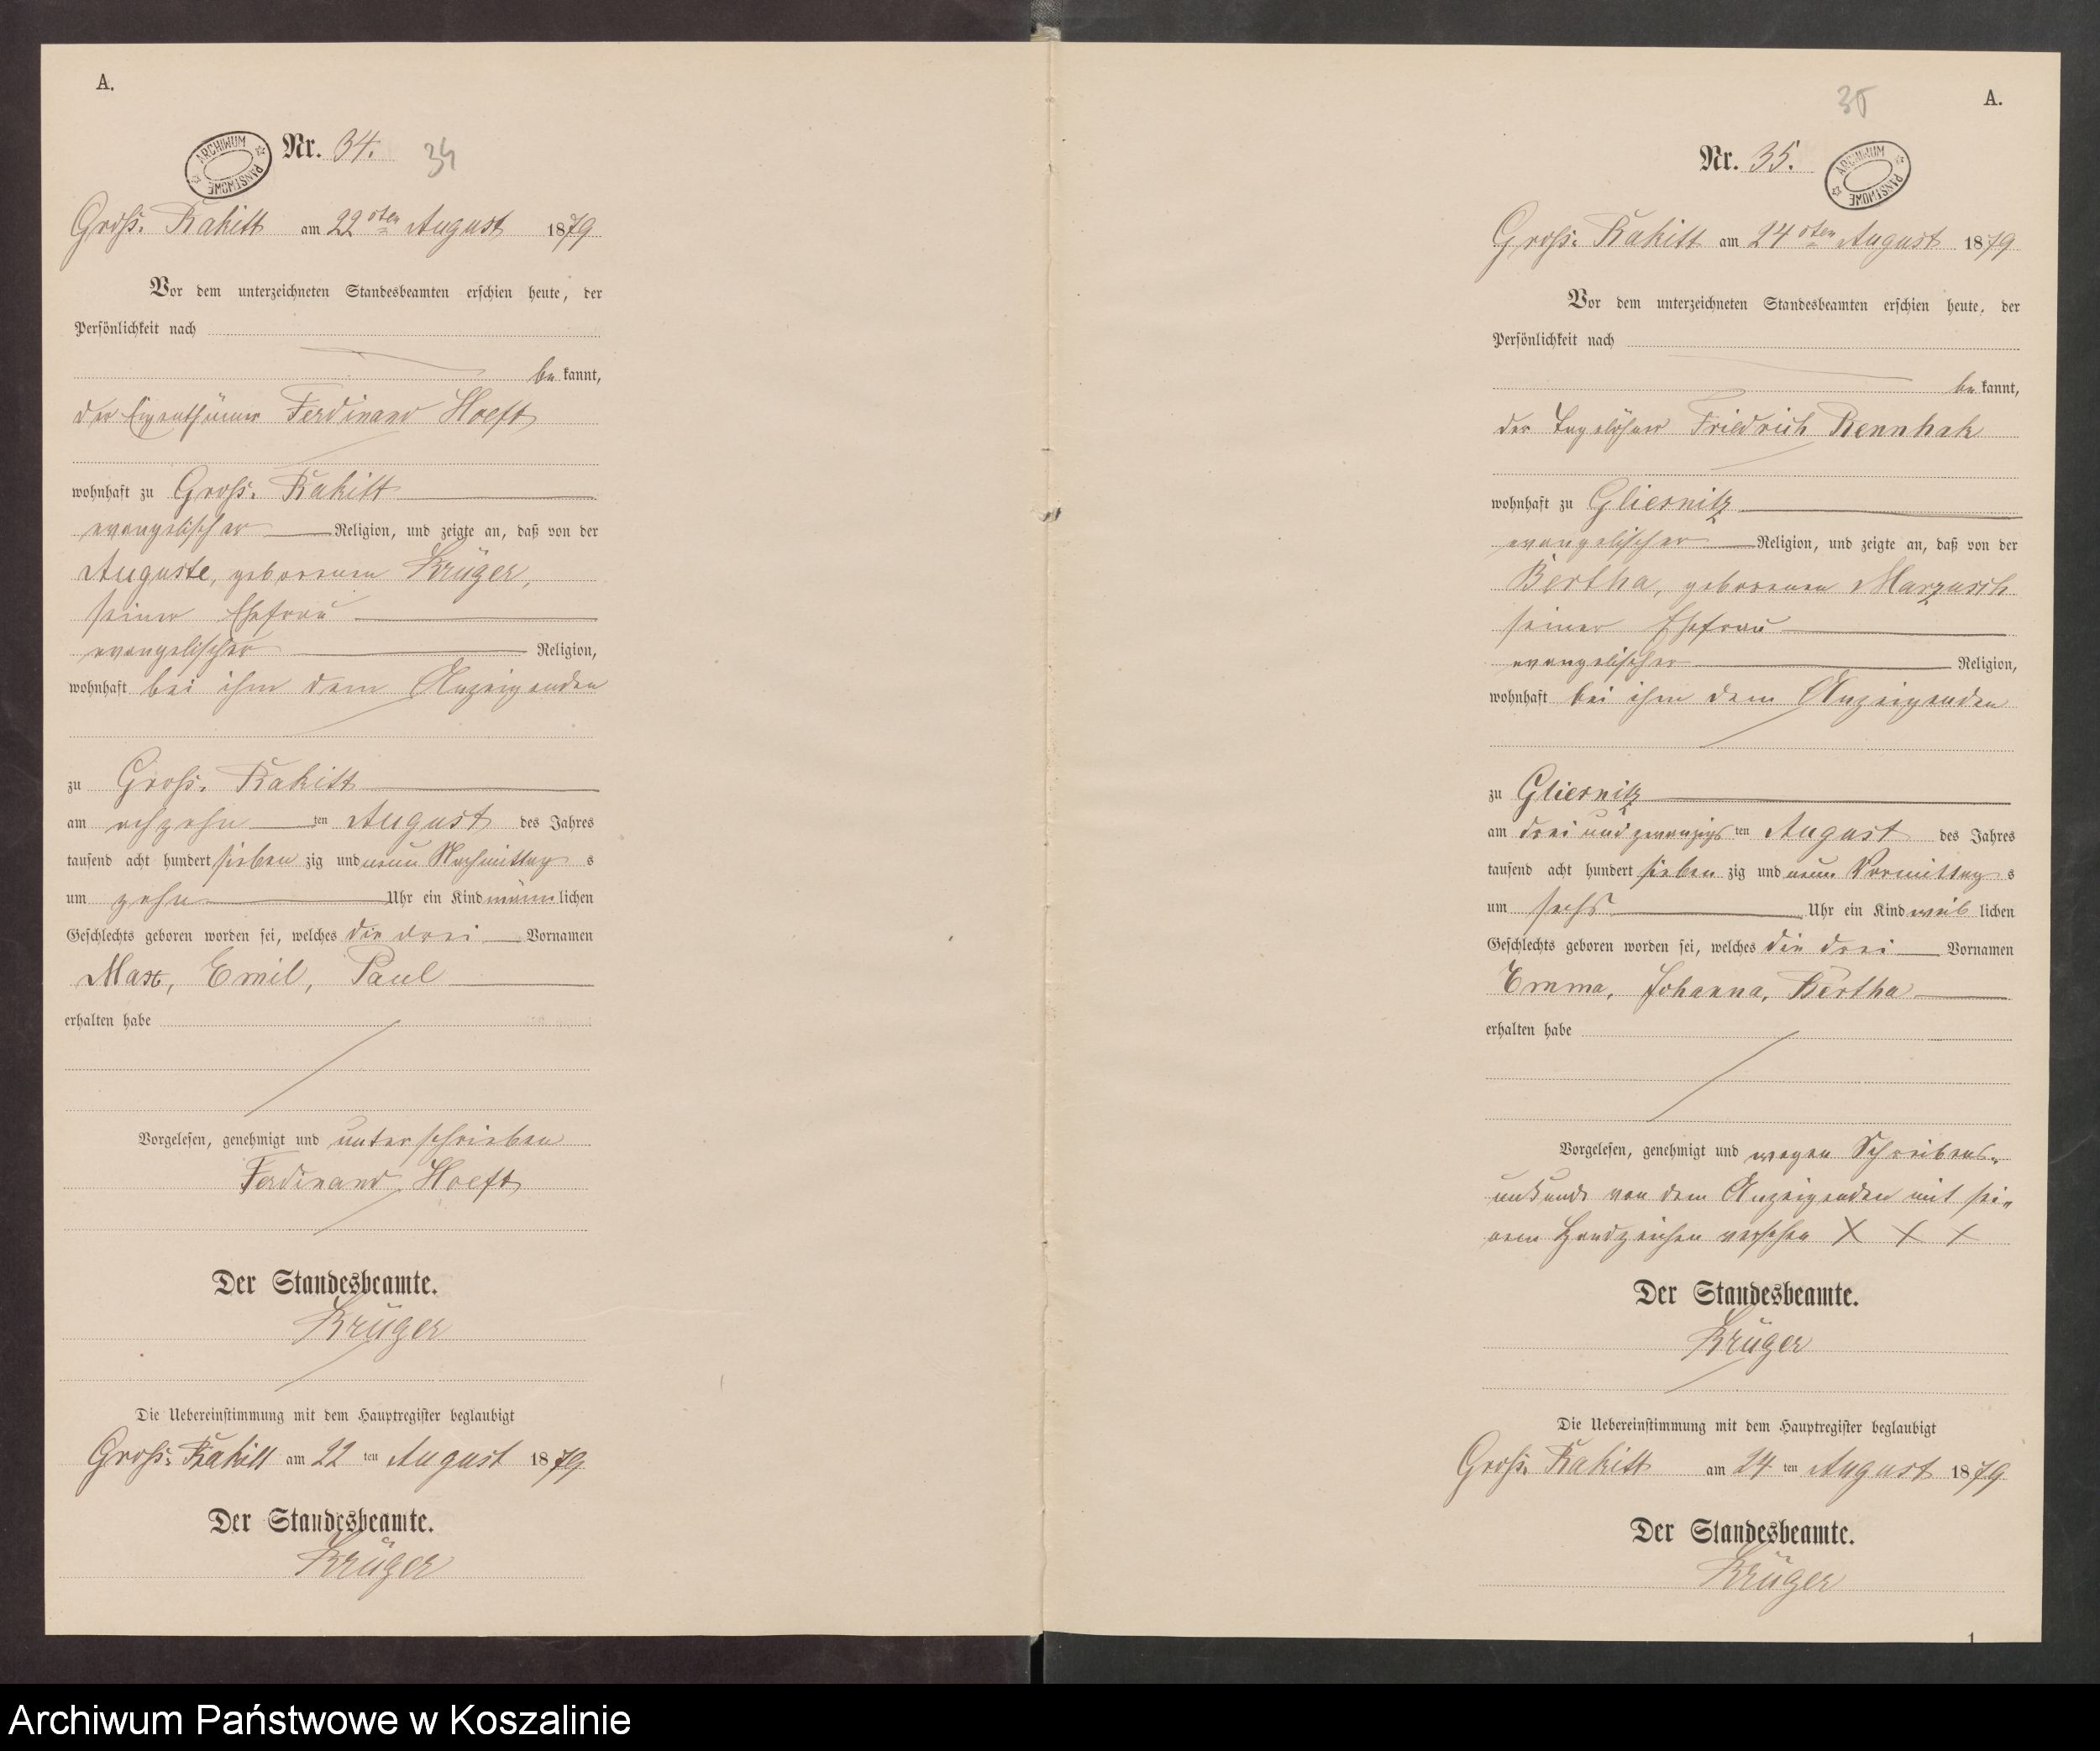 A.
ARCHIWUM PAŃSTWOWE
Nr. 34. 34
Groß-Rakitt am 22sten August 1879
Vor dem unterzeichneten Standesbeamten erschien heute, der
Persönlichkeit nach
be kannt,
der Eigenthümer Ferdinand Hoeft
wohnhaft zu Groß-Rakitt
evangelischer Religion, und zeigte an, daß von der
Auguste, geborenen Krüger,
seiner Ehefrau
evangelischer Religion,
wohnhaft bei ihm dem Anzeigenden
zu Groß-Rakitt
am achzehn ten August des Jahres
tausend acht hundert sieben zig und neun Nachmittag s
um zehn Uhr ein Kind männ lichen
Geschlechts geboren worden sei, welches die drei Vornamen
Max, Emil, Paul
erhalten habe
Vorgelesen, genehmigt und unterschrieben
Ferdinand Hoeft
Der Standesbeamte.
Krüger
Die Uebereinstimmung mit dem Hauptregister beglaubigt
Groß-Rakitt am 22 ten August 1879
Der Standesbeamte.
Krüger
35 A.
Nr. 35.
ARCHIWUM PAŃSTWOWE
Groß-Rakitt am 24sten August 1879
Vor dem unterzeichneten Standesbeamten erschien heute, der
Persönlichkeit nach
be kannt,
der Tagelöhner Friedrich Rennhak
wohnhaft zu Gliesnitz
evangelischer Religion, und zeigte an, daß von der
Bertha, geborenen Marzusch
seiner Ehefrau
evangelischer Religion,
wohnhaft bei ihm dem Anzeigenden
zu Gliesnitz
am drei und zwanzigs ten August des Jahres
tausend acht hundert sieben zig und neun Vormittag s
um sechs Uhr ein Kind weib lichen
Geschlechts geboren worden sei, welches die drei Vornamen
Emma, Johanna, Bertha
erhalten habe
Vorgelesen, genehmigt und wegen Schreibens-
unkunde von dem Anzeigenden mit sei-
nem Handzeichen versehen X X X
Der Standesbeamte.
Krüger
Die Uebereinstimmung mit dem Hauptregister beglaubigt
Groß-Rakitt am 24 ten August 1879
Der Standesbeamte.
Krüger
1
Archiwum Państwowe w Koszalinie